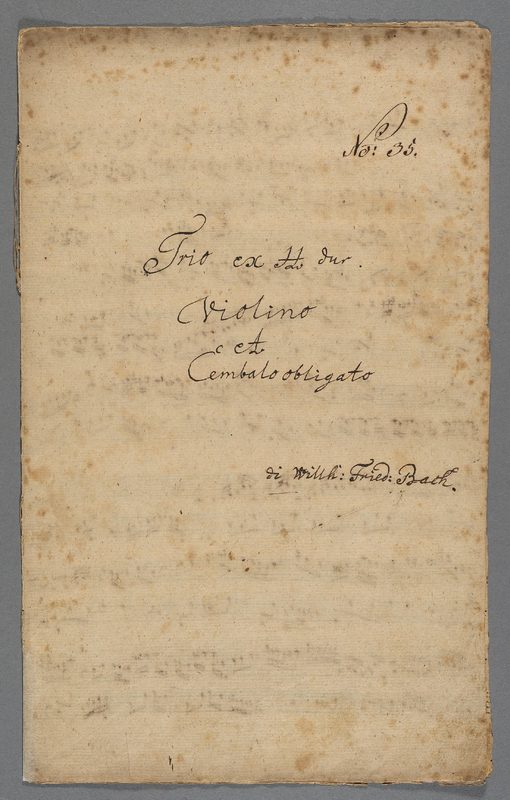 No: 35.
Trio ex H dur.
Violino
et
Cembalo obligato
di Willh: Fried: Bach.